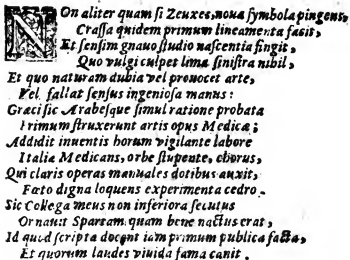 NOn aliter quam ſi Zeuxes, noua ſymbola pingens,
Craſſa quidem primum lineamenta facit,
Et ſenſim gnauo ſtudio naſcentia fingit,
Quo vulgi culpet lima ſiniſtra nibil,
Et quo naturam dubia vel prouocet arte,
Vel fallat ſenſus ingenioſa manus:
Graciſic Arabeſque ſimul ratione probata
Primum ſtruxerunt artis opus Medicæ;
Addidit inuentis horum vigilante labore
Italia Medicans, orbe ſtupente, chorus,
Qui claris operas manuales dotibus auxit,
Fæto digna loquens experimenta cedro.
Sic Collega meus non inferiora ſecutus
Ornauit Spartam quam bene nactus erat,
Id quod ſcripta docent iam primum publica facta,
Et quorum laudes viuida fama canit.